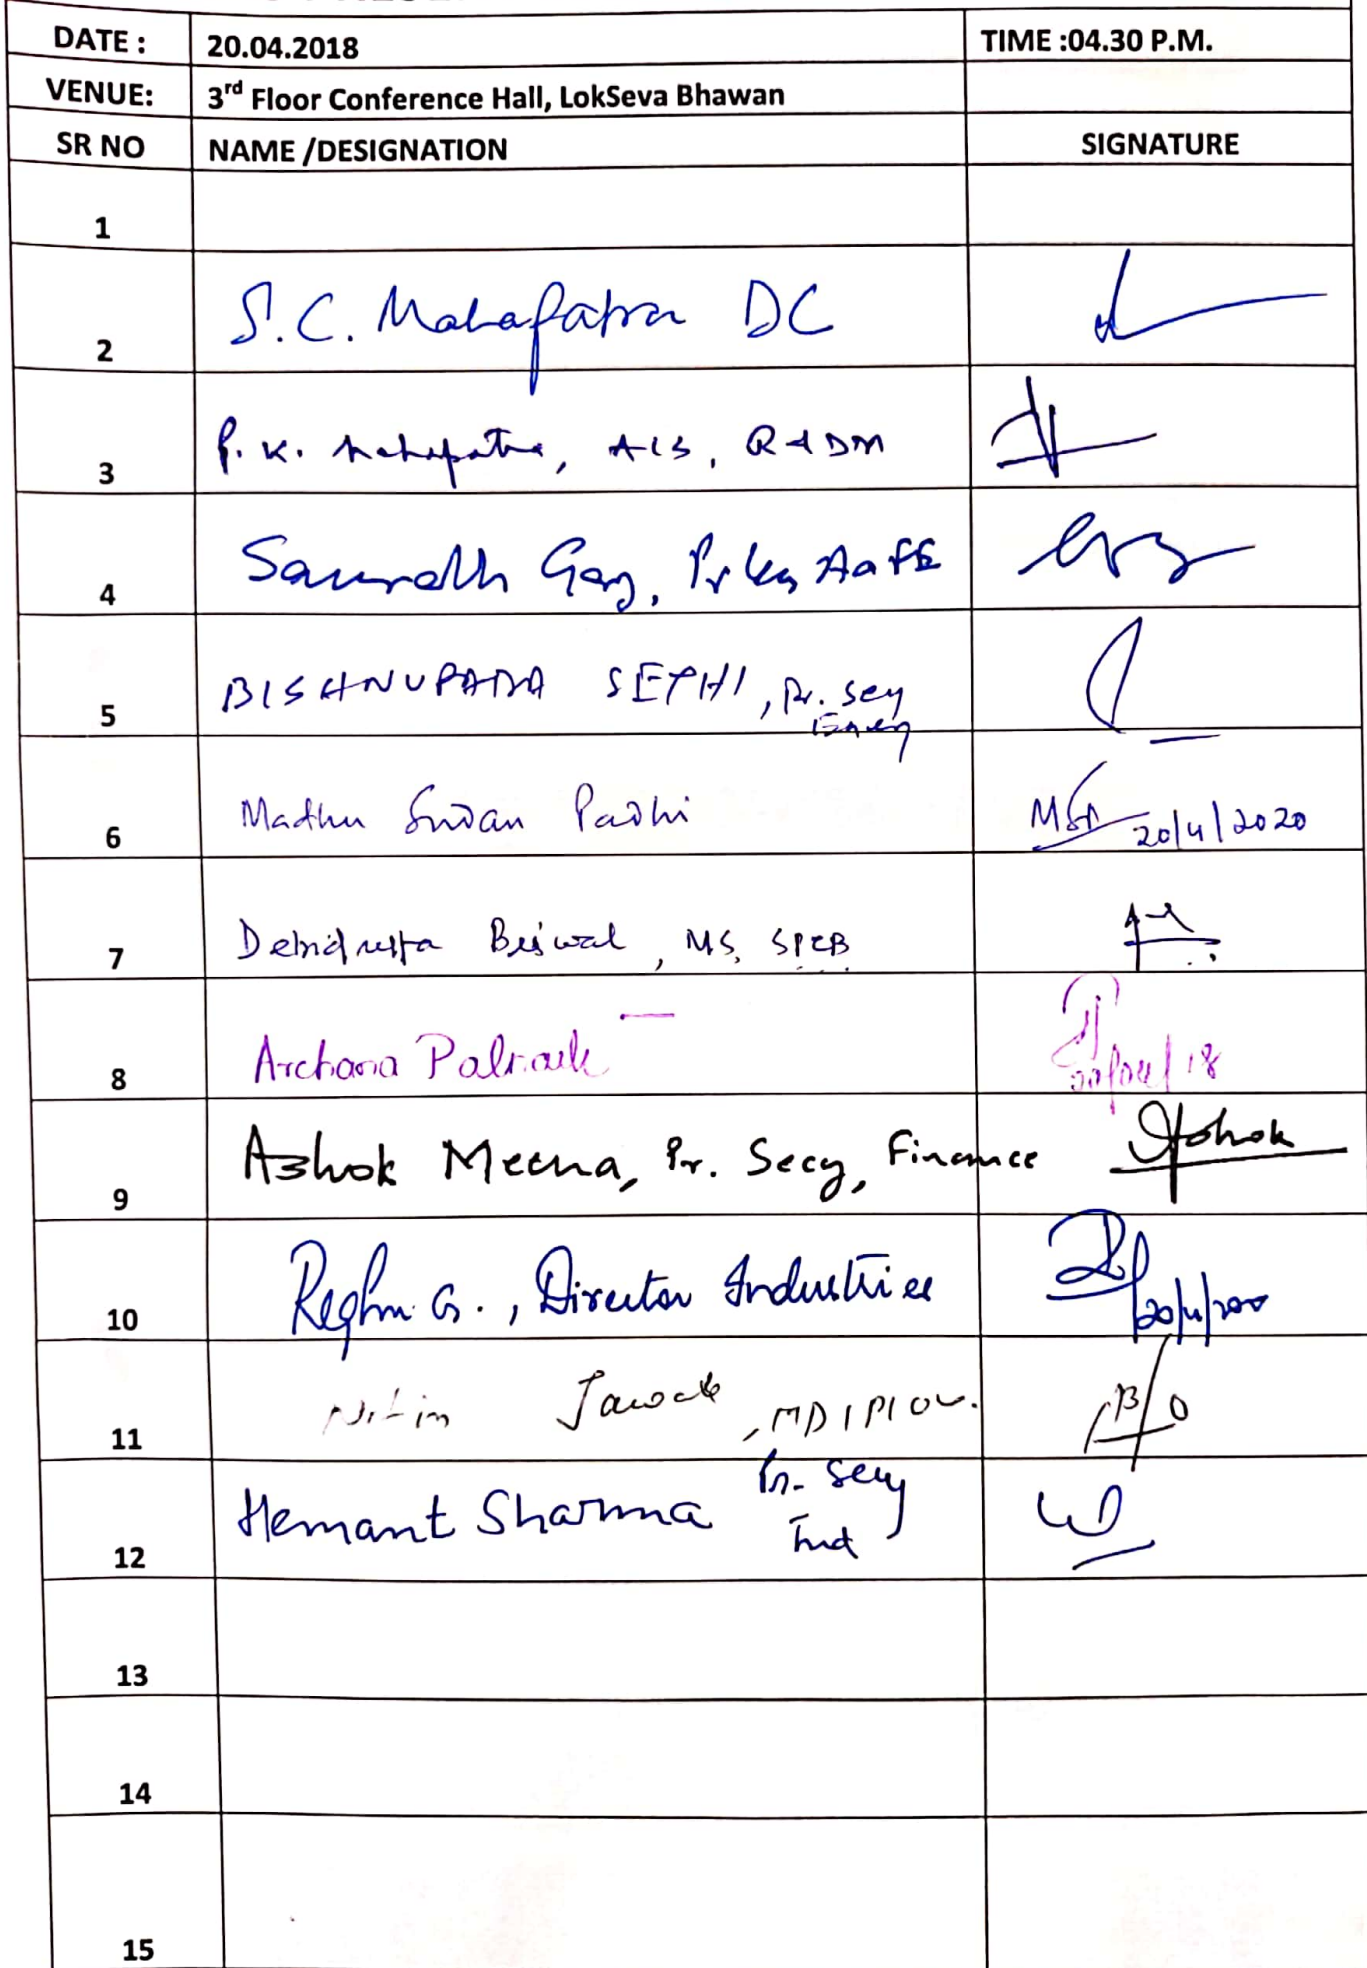 DATE : 20.04.2018 TIME :04.30 P.M.
VENUE: 3rd Floor Conference Hall, LokSeva Bhawan
SR NO NAME /DESIGNATION SIGNATURE
1
2 S.C. Mahapatra DC
3 P. K. Mahapatra, ACS, R&DM
4 Saurabh Garg,
5 BISHNUPADA SETHI, Pr. Secy
Energy
6 Madhu Sudan Padhi 20/4/2020
7 Debidutta Biswal, MS, SPCB
8 Archana Patnaik
9 Ashok Meena, Pr. Secy, Finance Ashok
10 Reghu G., Director Industries
11 Nitin Jawale, MD IPICOL.
12 Hemant Sharma Pr. Secy
Ind
13
14
15